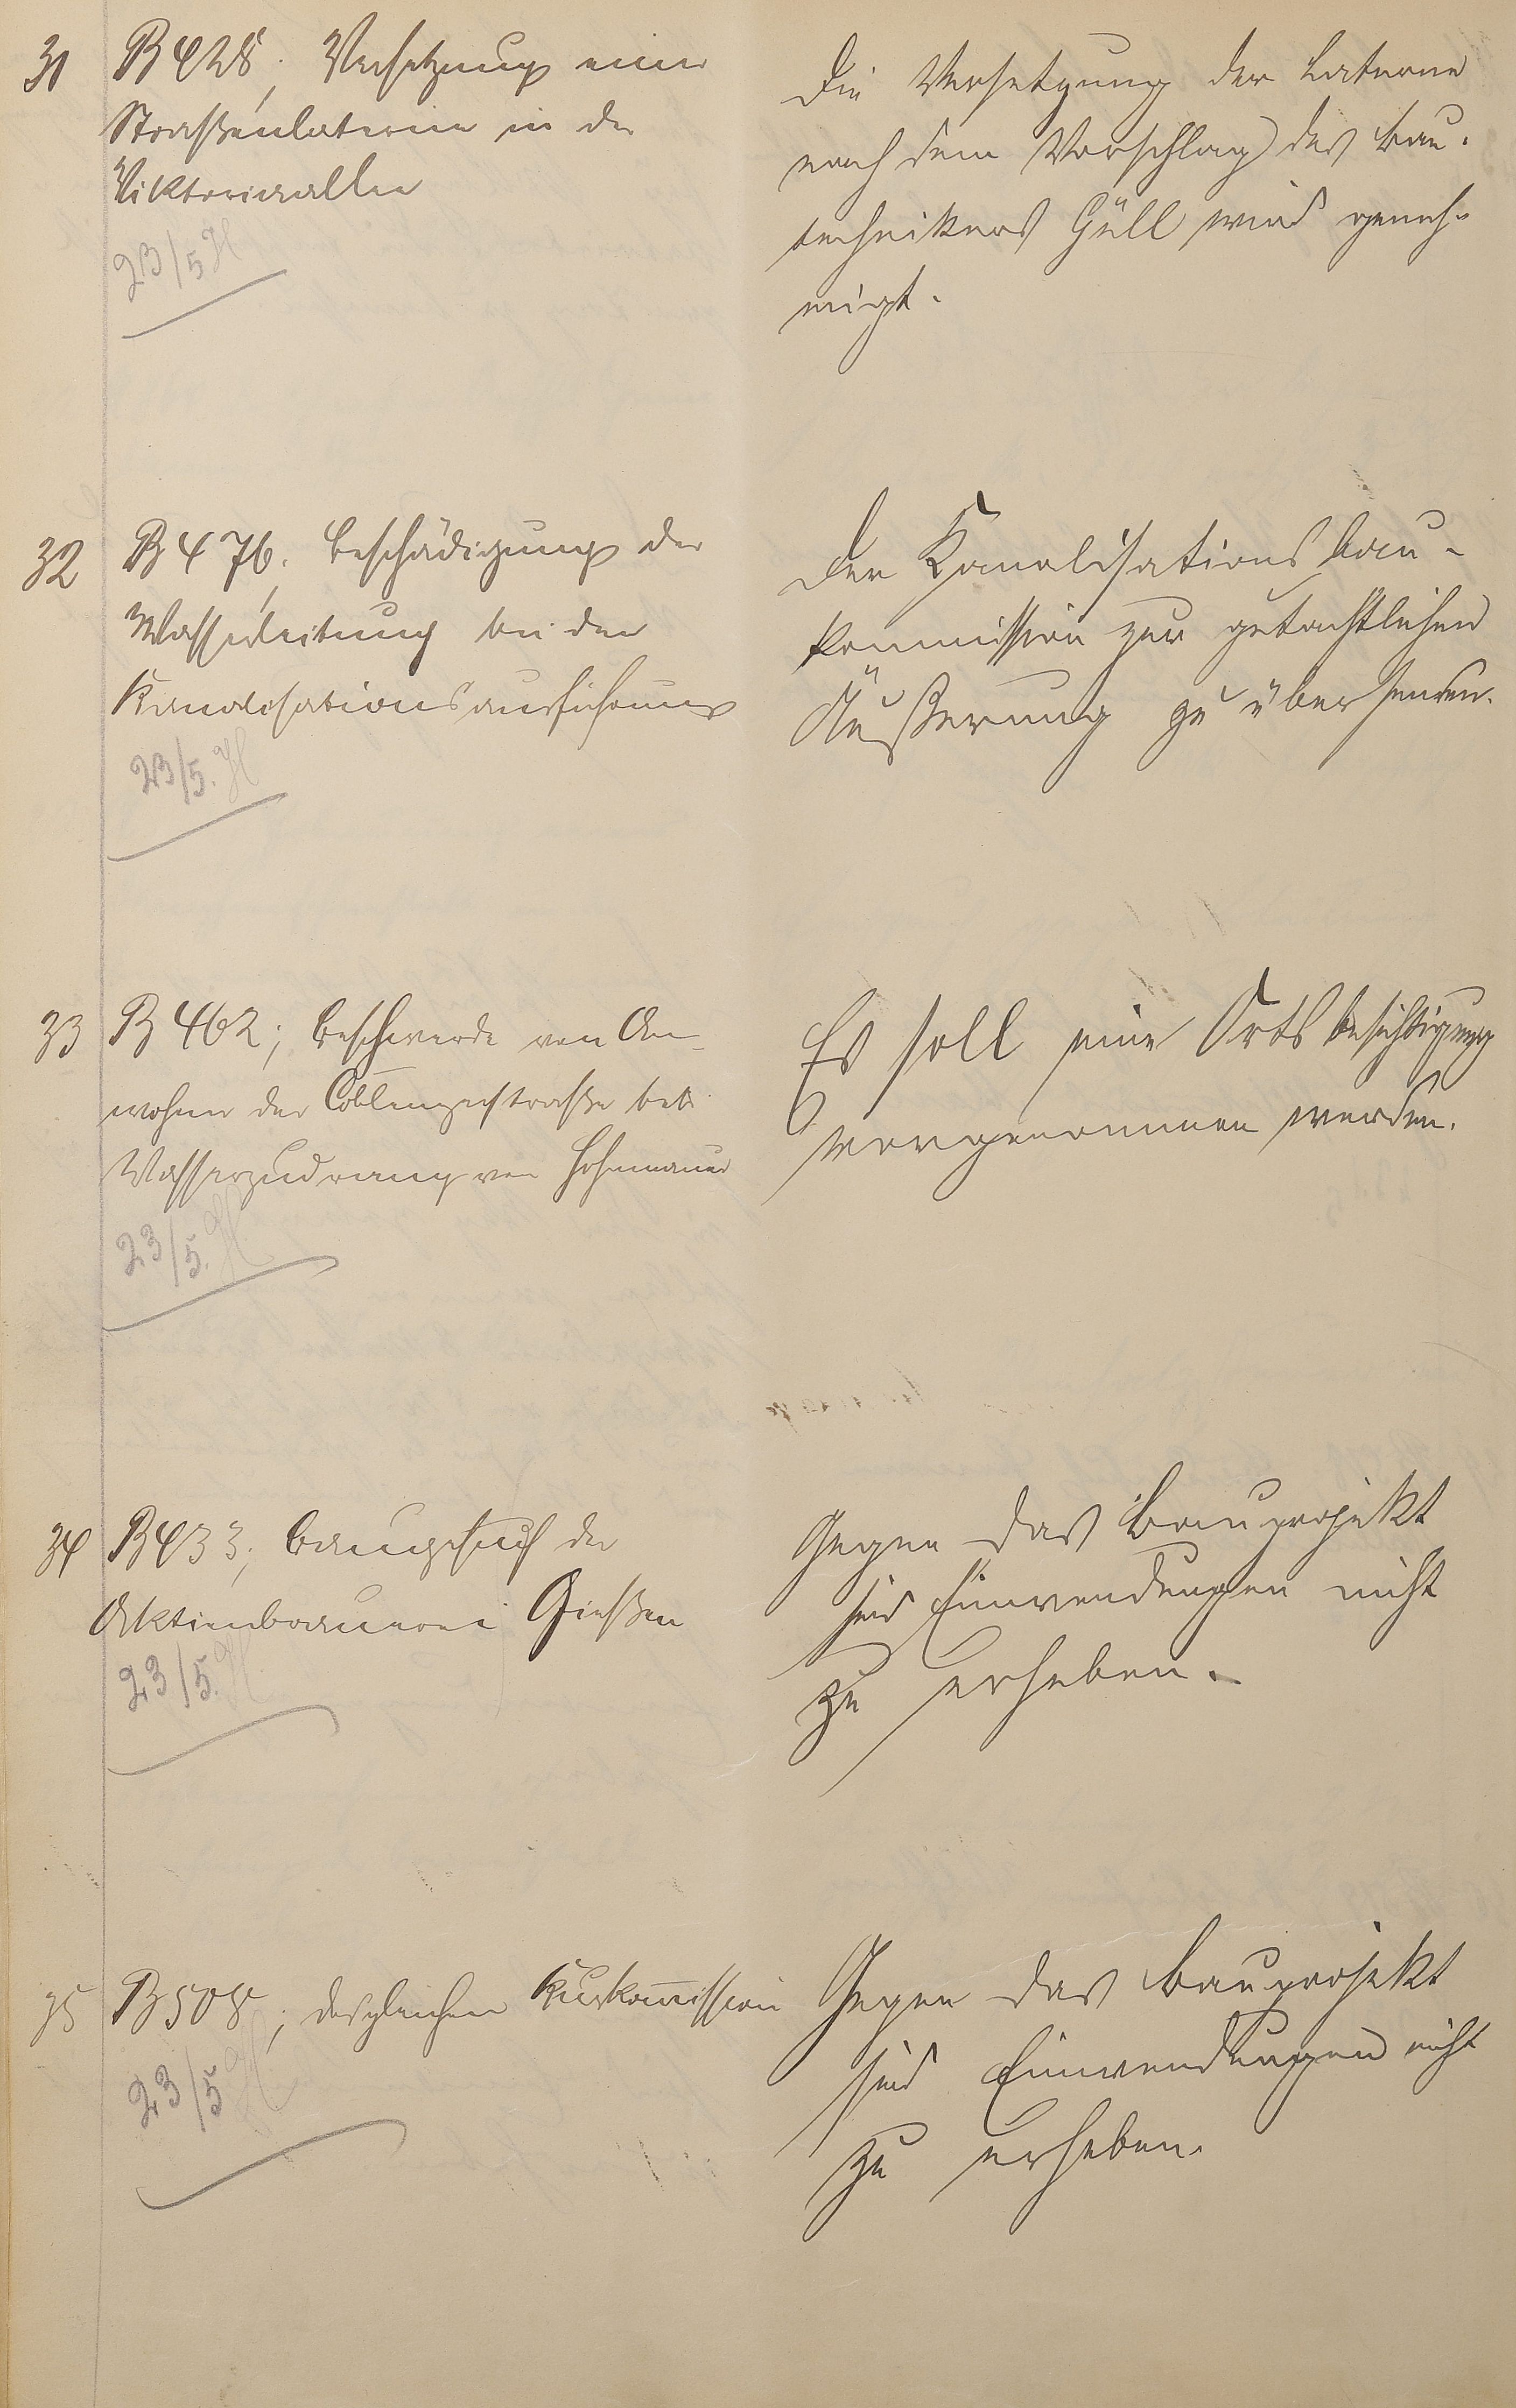 31
B 428; Versetzung einer
Straßenlaterne in der
Viktoriaallee
23/5 H
Die Versetzung der Laterne
nach dem Vorschlag des Bau-
technikers Güll wird geneh-
migt.
32
B 476; Beschädigung der
Wasserleitung bei der
Kanalisationsausführung
23/5. H
Der Kanalisationsbau-
kommission zur gutachtlichen
Äußerung zu übersenden.
33
B 462; Beschwerde von An-
wohner der Coblenzerstraße betr.
Wasserzudrang von Hohemauer
23/5. H
Es soll eine Ortsbesichtigung
vorgenommen werden.
34
B 433; Baugesuch der
Aktienbrauerei Gießen
23/5. H
Gegen das Bauprojekt
sind Einwendungen nicht
zu erheben.
35
B 508; desgleichen Kurkom̅ission
23/5 H
Gegen das Bauprojekt
sind Einwendungen nicht
zu erheben.